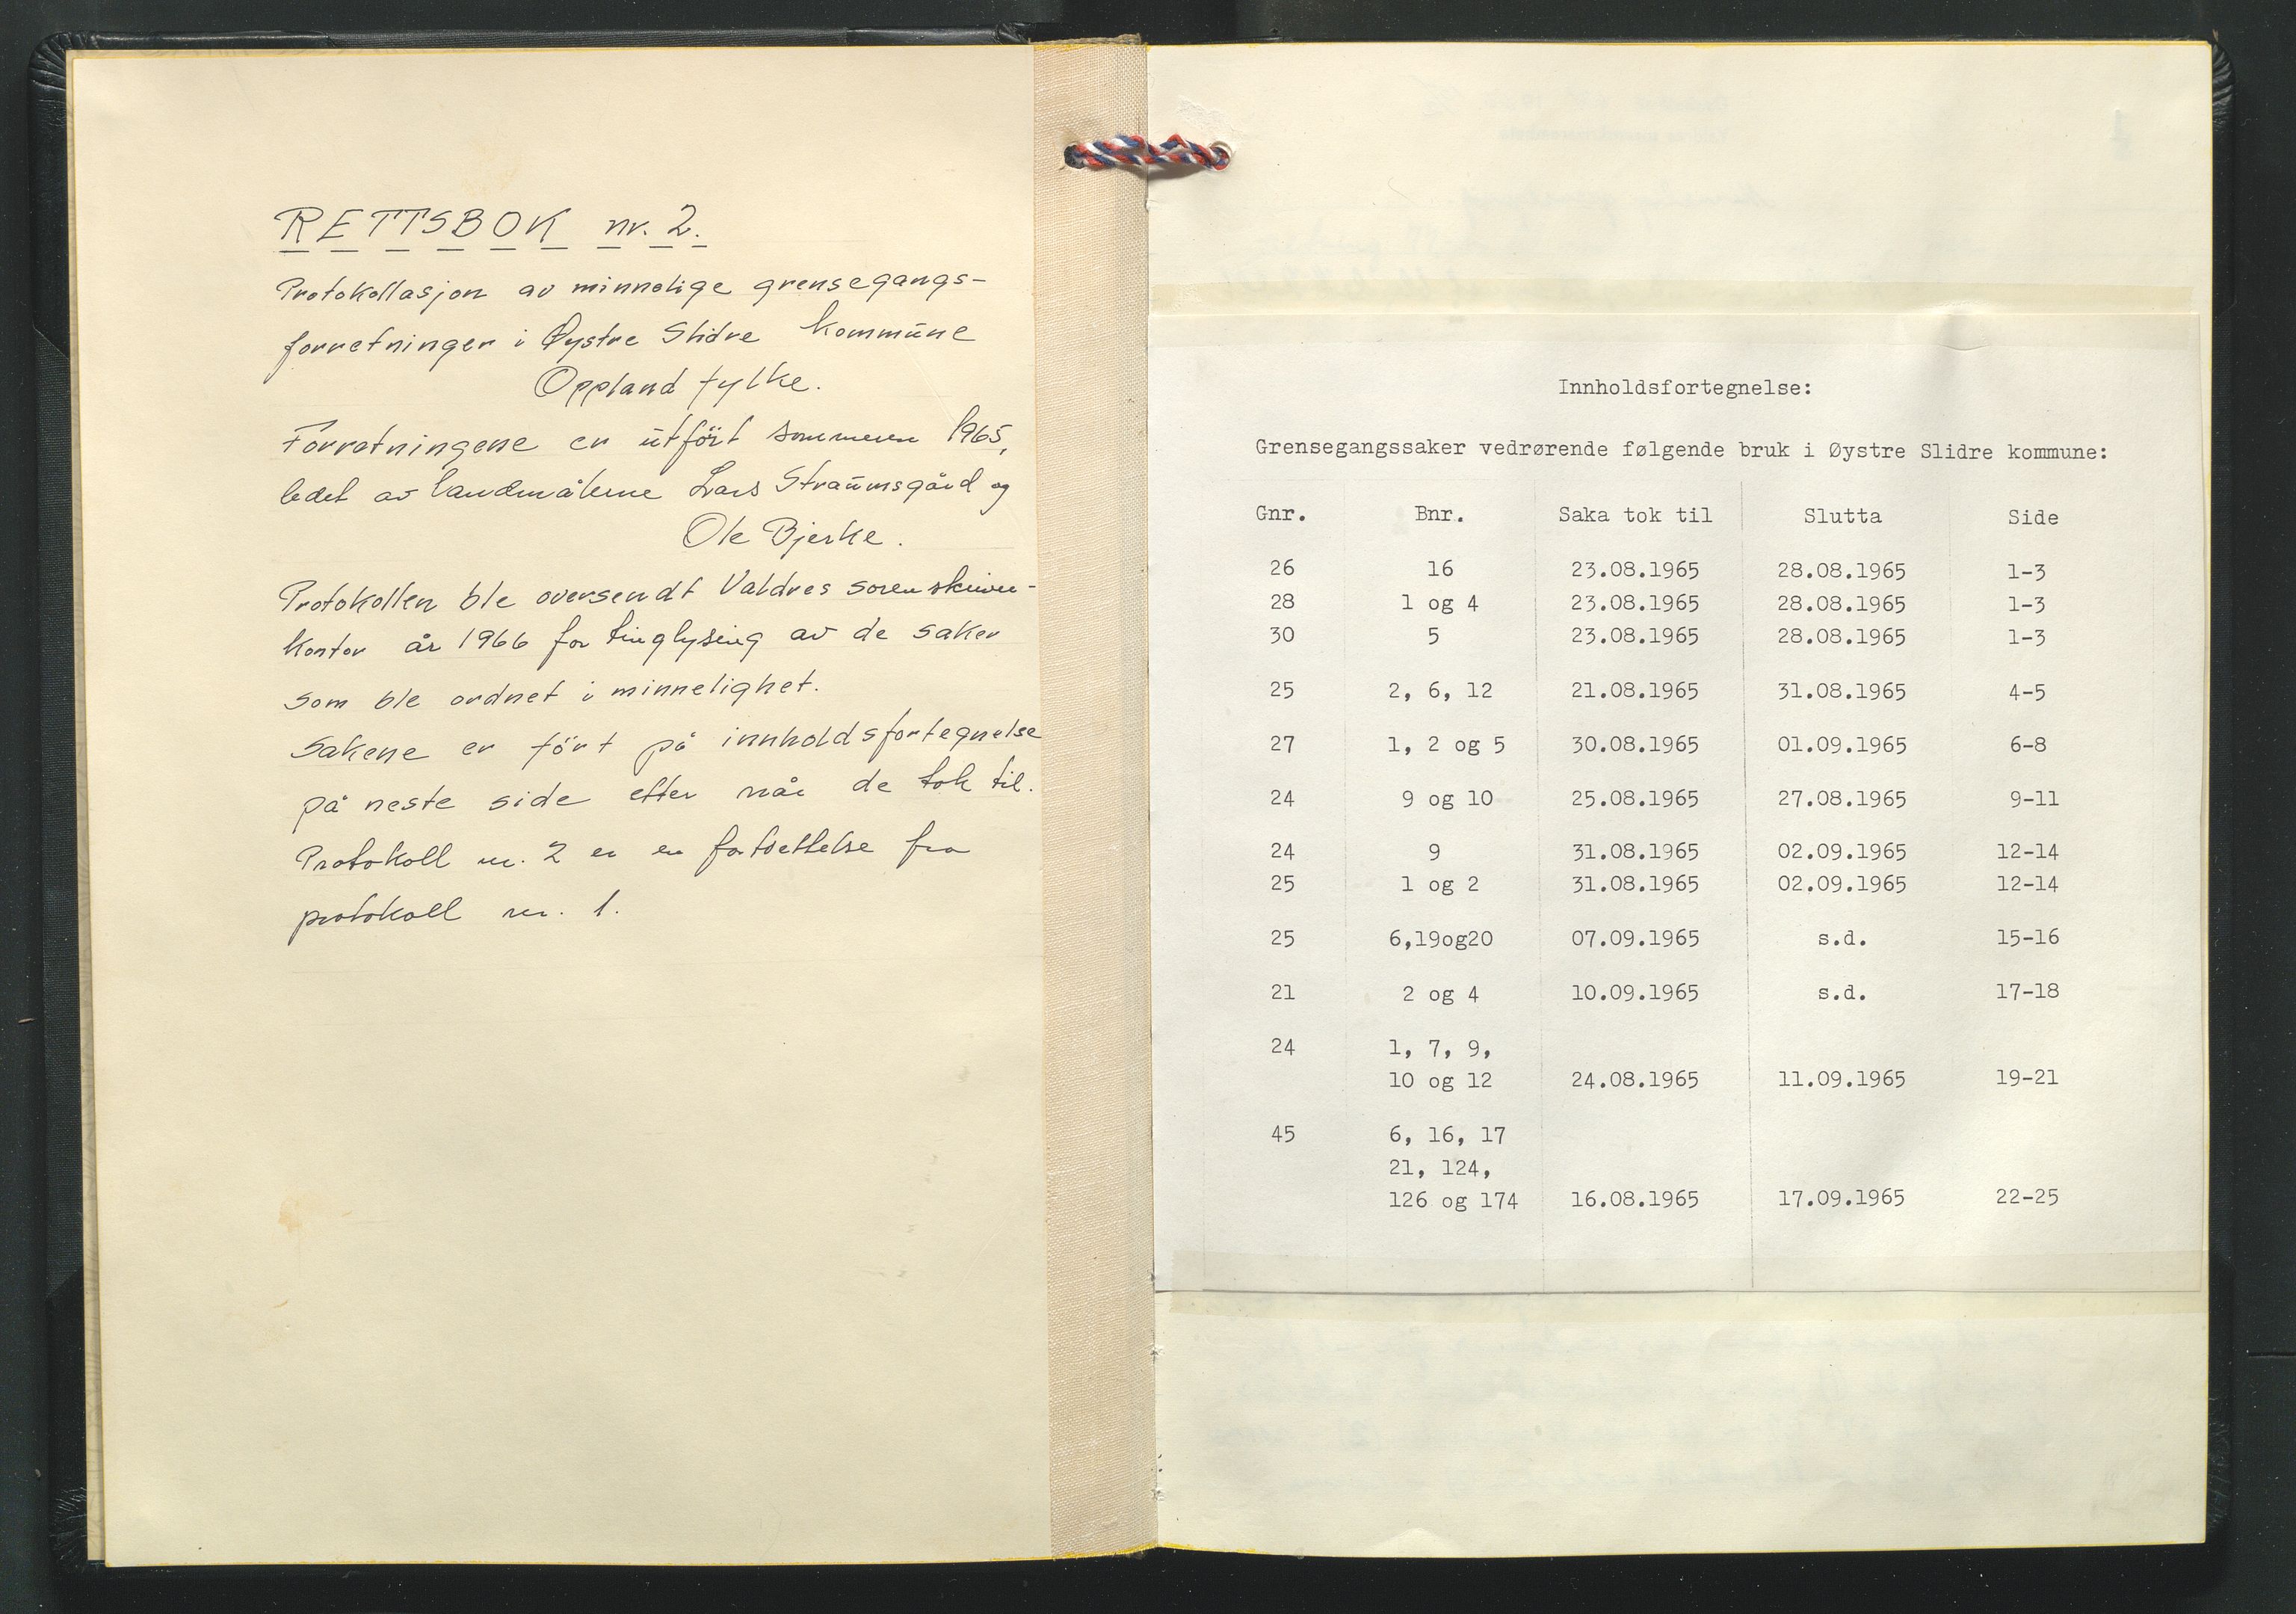 RETTSBOK nr. 2.
Protokollasjon av minnelige grensegangs-
forretninger i Øystre Slidre kommune
Oppland fylke.
Forretningene er utført sommeren 1965,
ledet av landmålerne Lars Straumsgård og
Ole Bjerke.
Protokollen ble oversendt Valdres sorenskriver-
kontor år 1966 for tinglysing av de saker
som ble ordnet i minnelighet.
Sakene er ført på innholdsfortegnelse
på neste side etter når de tok til.
Protokoll nr. 2 er en fortsettelse fra
protokoll nr. 1.
Innholdsfortegnelse:
Grensegangssaker vedrørende følgende bruk i Øystre Slidre kommune:
Gnr. Bnr. Saka tok til Slutta Side
26 16 23.08.1965 28.08.1965 1-3
28 1 og 4 23.08.1965 28.08.1965 1-3
30 5 23.08.1965 28.08.1965 1-3
25 2, 6, 12 21.08.1965 31.08.1965 4-5
27 1, 2 og 5 30.08.1965 01.09.1965 6-8
24 9 og 10 25.08.1965 27.08.1965 9-11
24 9 31.08.1965 02.09.1965 12-14
25 1 og 2 31.08.1965 02.09.1965 12-14
25 6,19og20 07.09.1965 s.d. 15-16
21 2 og 4 10.09.1965 s.d. 17-18
24 1, 7, 9,
10 og 12 24.08.1965 11.09.1965 19-21
45 6, 16, 17
21, 124,
126 og 174 16.08.1965 17.09.1965 22-25